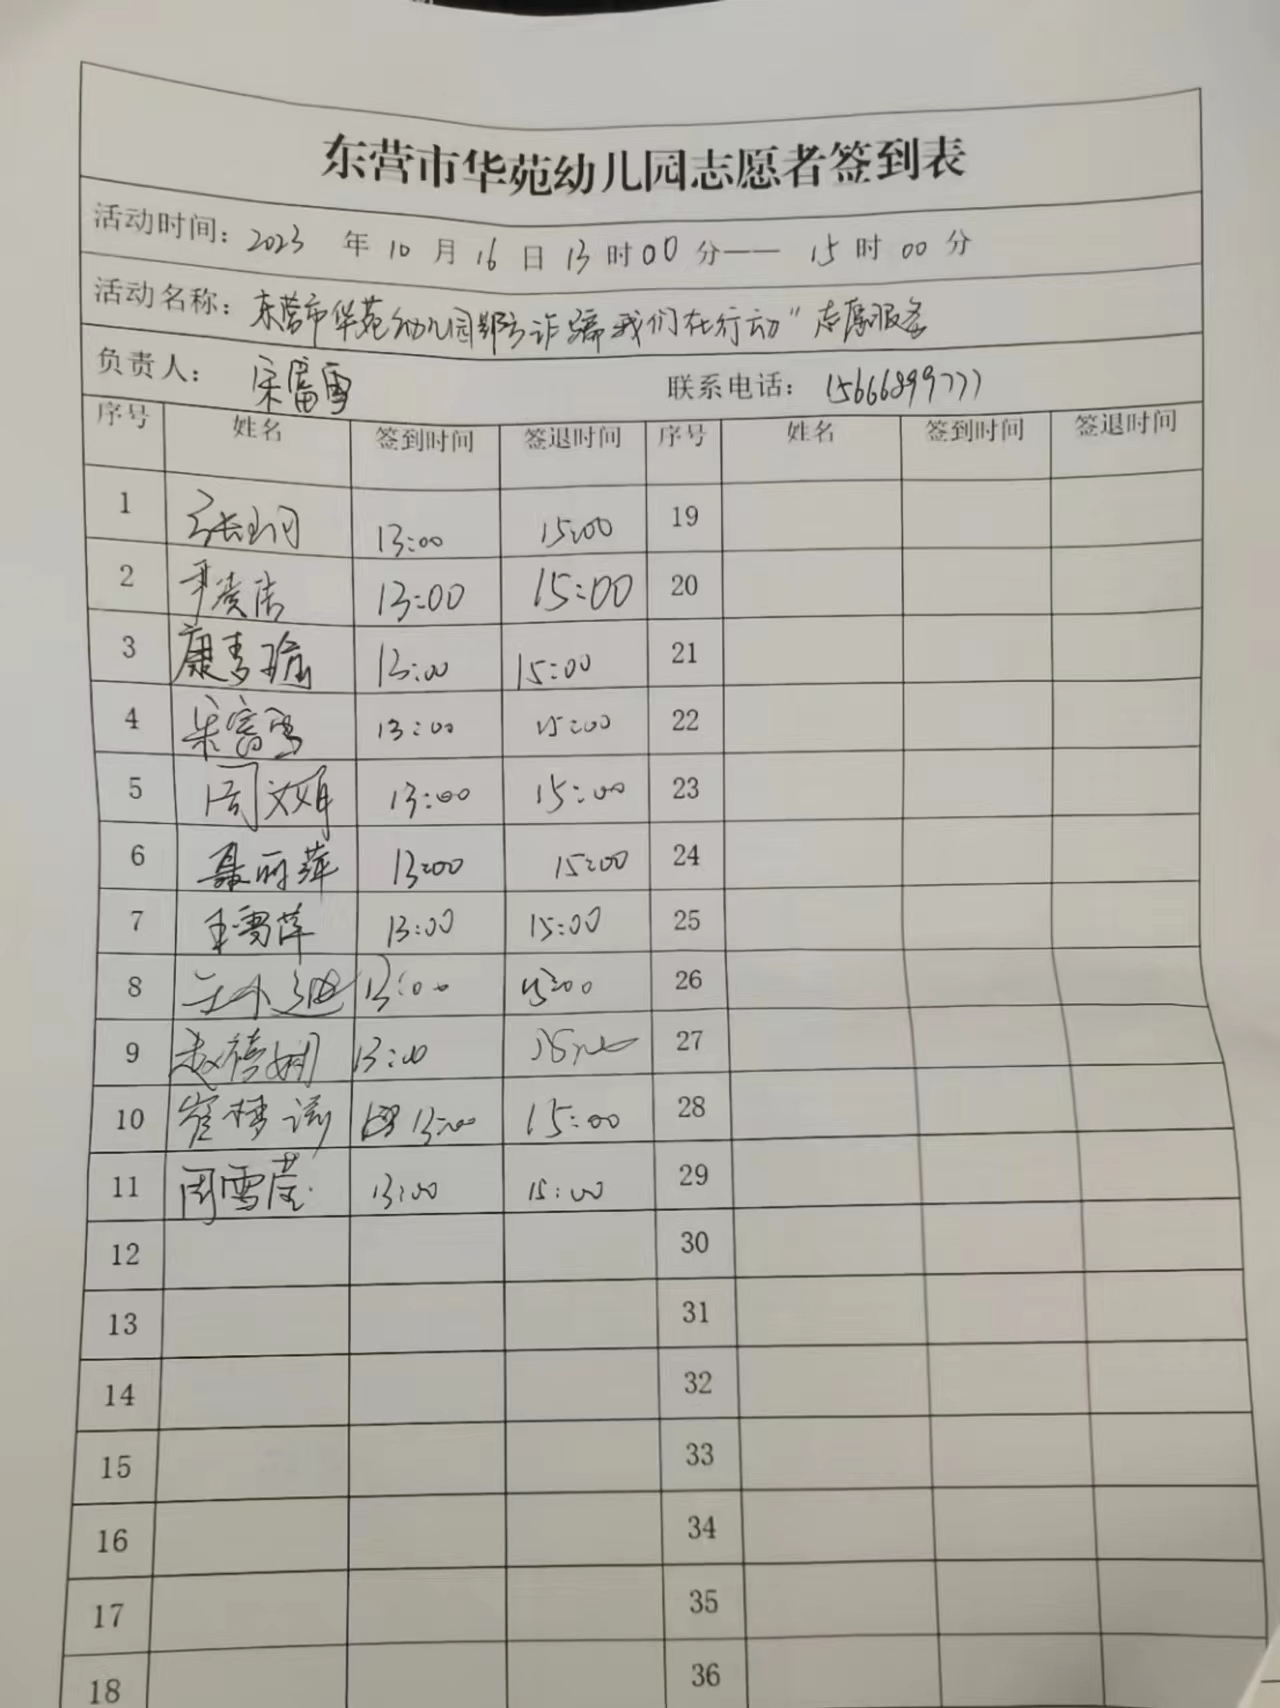 东营市华苑幼儿园志愿者签到表
活动时间：2023 年 10 月 16 日 13 时 00 分—— 15 时 00 分
活动名称：东营市华苑幼儿园 诈骗我们在行动”志愿服务
负责人：宋富雪 联系电话：15666899777
序号 姓名 签到时间 签退时间 序号 姓名 签到时间 签退时间
1 13:00 15:00 19
2 13:00 15:00 20
3 康青瑜 13:00 15:00 21
4 宋富雪 13:00 15:00 22
5 周文娟 13:00 15:00 23
6 聂丽萍 13:00 15:00 24
7 王雪萍 13:00 15:00 25
8 13:00 15:00 26
9 13:00 27
10 13:00 15:00 28
11 周雪莹 13:00 15:00 29
12 30
13 31
14 32
15 33
16 34
17 35
18 36